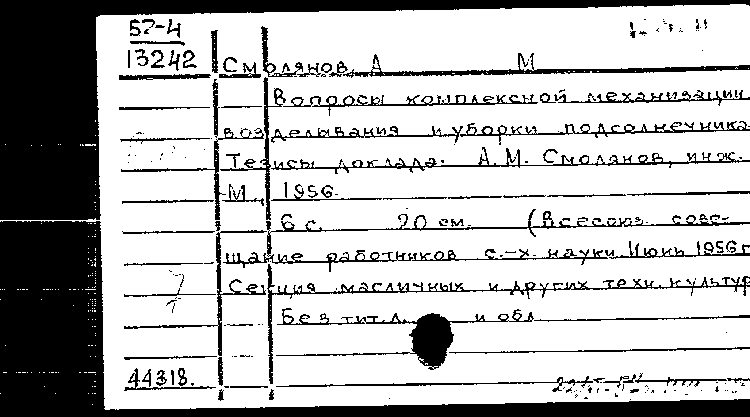 57-4
13242
Смолянов, А М
Вопросы комплексной механизации
возделывания и уборки подсолнечника
Тезисы доклада. А.М. Смолянов, инж.
М., 1956.
6 с. 20 см. (Всесоюз. сове-
щание работников с.-х. науки. Июнь 1956 г
Секция масличных и других техн. культур
Без тит. л. и обл
7
44318.